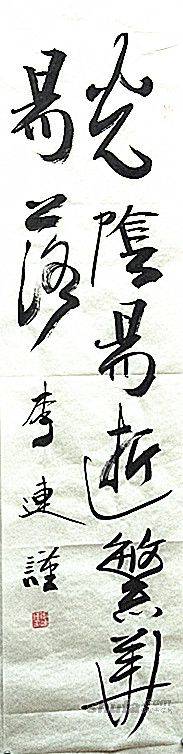 光陰易逝繁華
易落
李連謹